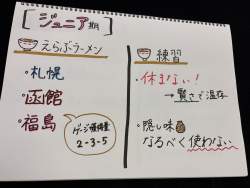 ジュニア期
えらぶラーメン
・札幌
・函館
・福島
ゲージ獲得量
2-3-5
練習
・休まない!
→賢さで温存
・隠し味
なるべく使わない